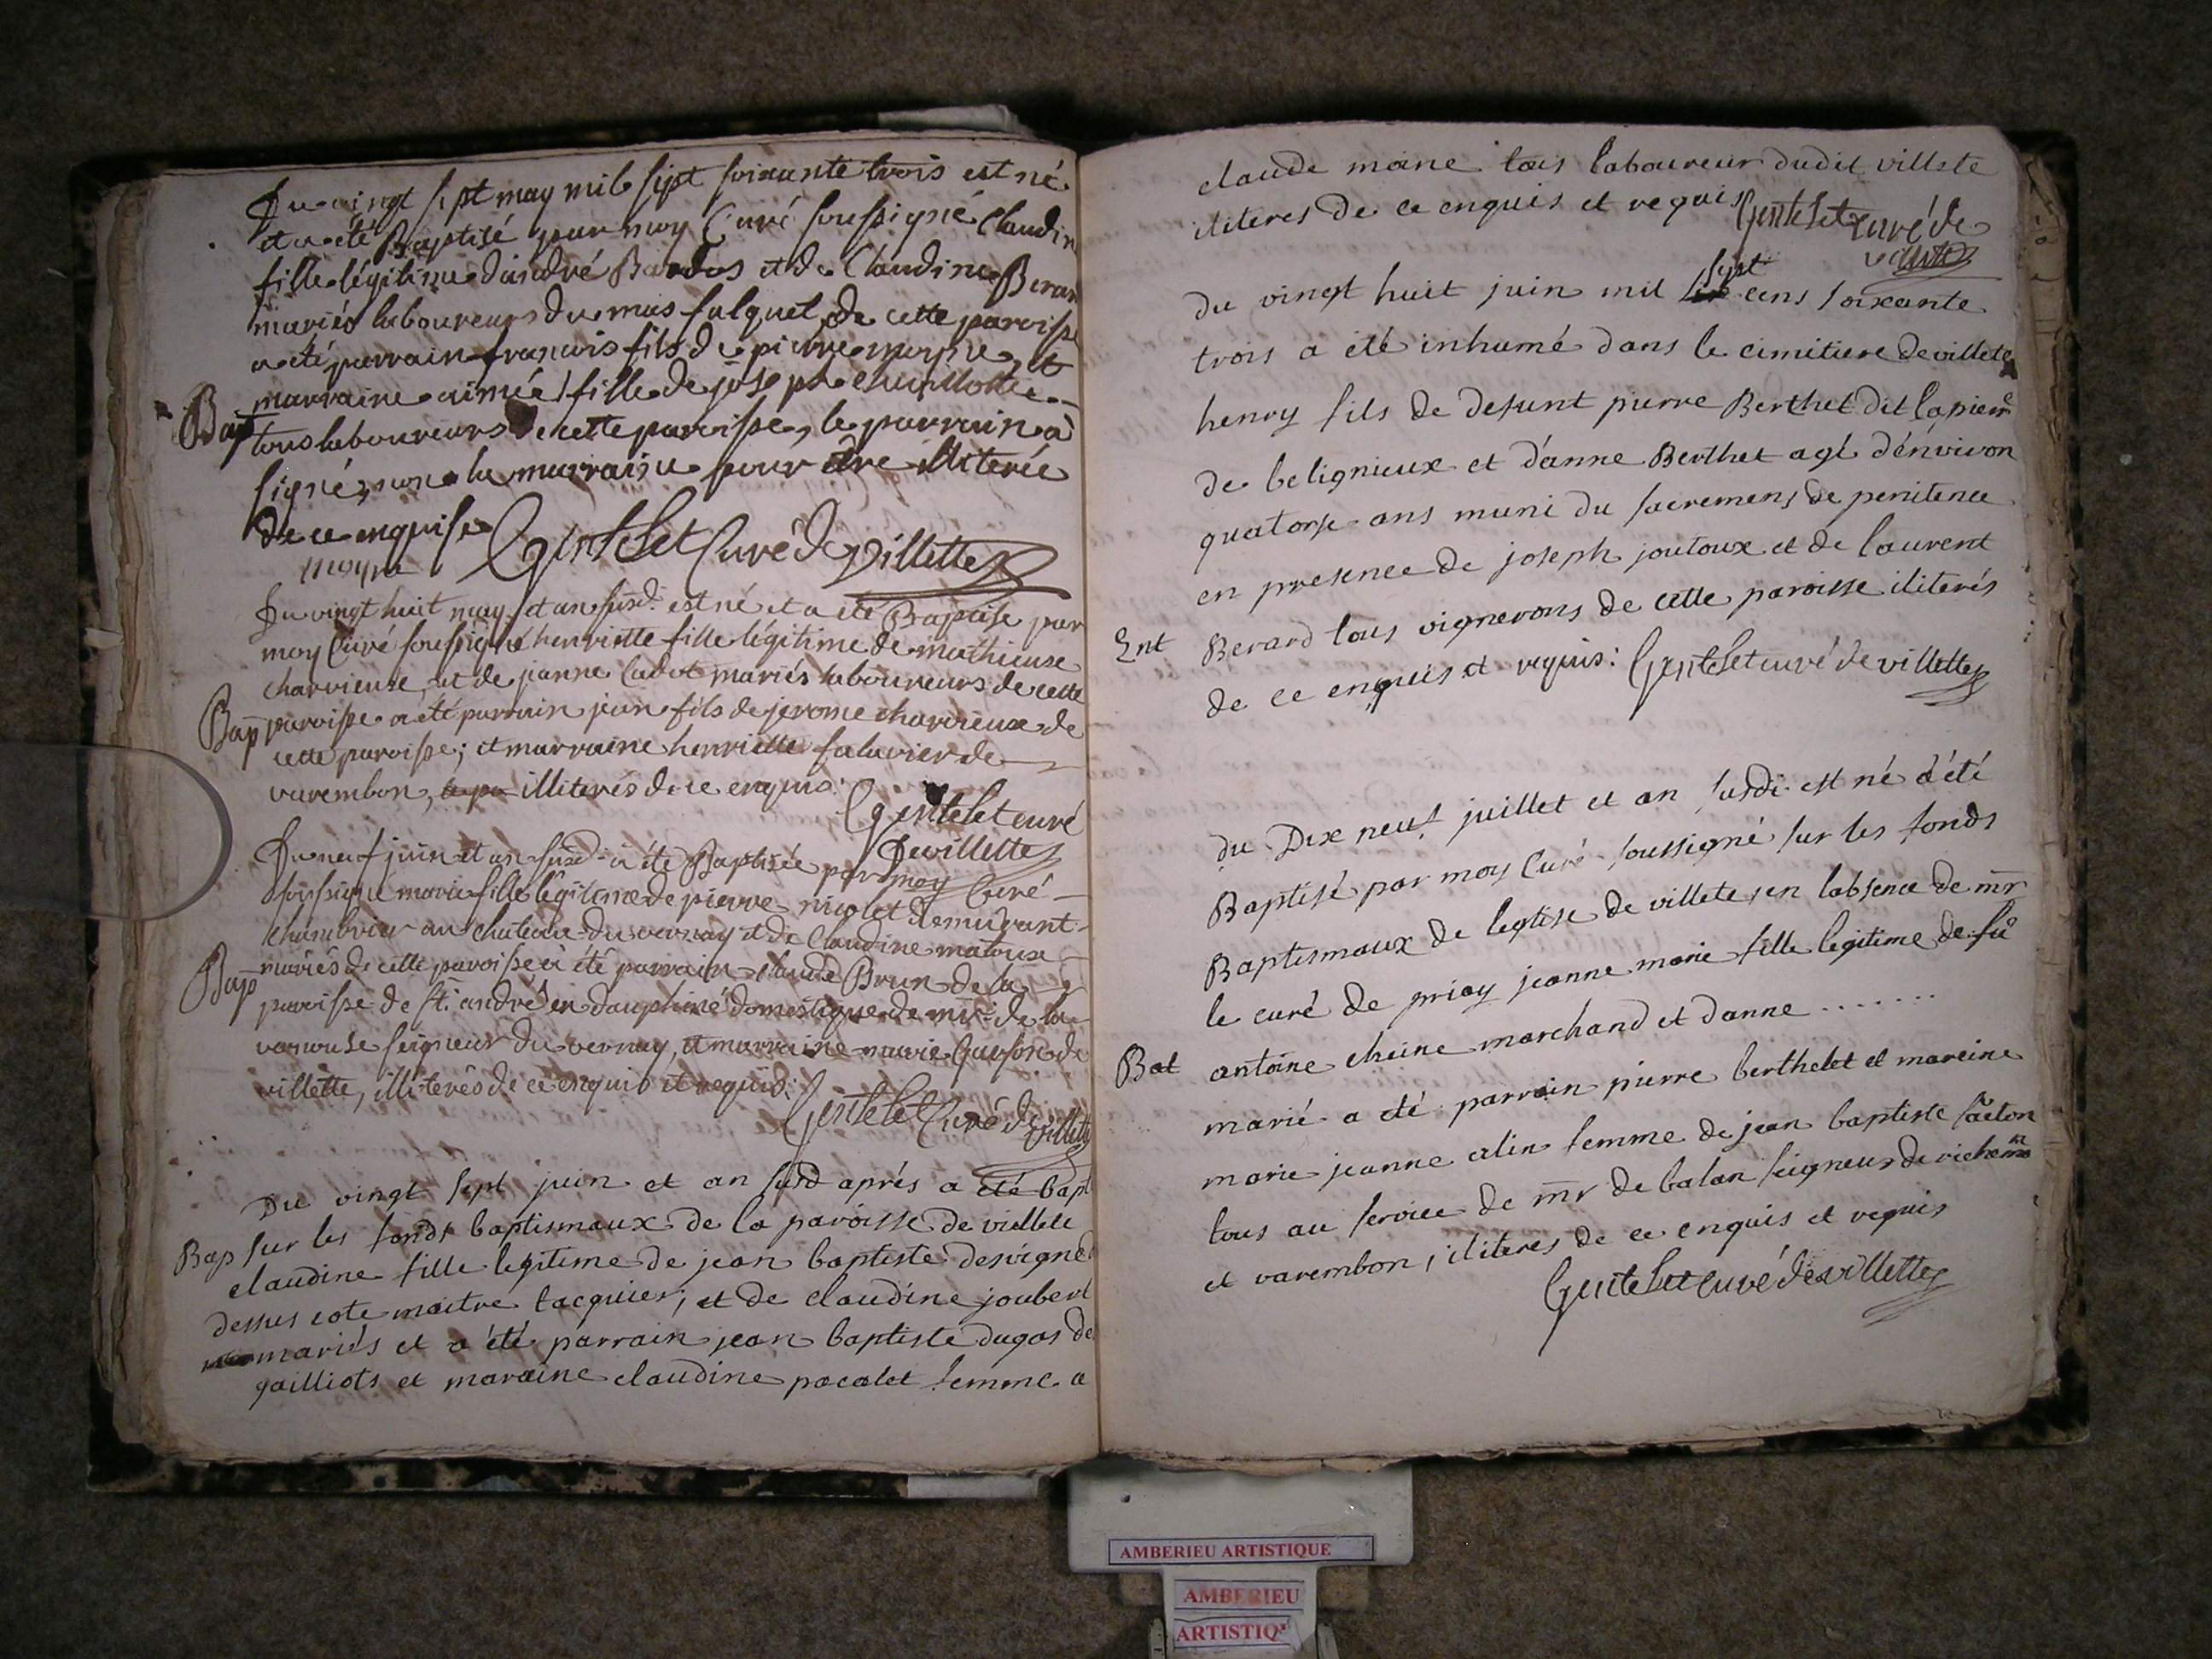 Du vingt sept may mil sept soixante trois est né
et a été Baptisé par moy Curé soussigné Claudin
fille légitime d'andré Bardos et de Claudine Berar
mariés laboureurs du mas falquet de cette paroisse
a été parrain francois fils de pierre moyne et
marraine aimée fille de joseph
Bap
tous laboureurs de cette paroisse, le parrain a
signé, non la marraine pour être illiterée
de ce enquise Gentelet Curé de Villette
moyne
Du vingt huit may et an susd. est né et a été Baptisé par
moy Curé soussigné henriette fille légitime de mathieuse
charvieuse, et de janne Cadot mariés laboureurs de cette
Bap paroisse a été parrain jean fils de jerome charvieux de
cette paroisse; et marraine henriette falavier de
varembon, illiterés de ce enquis.
Gentelet curé
Devillette
Du neuf juin et an susd. a été Baptisée par moy Curé
soussigné marie fille légitime de pierre nicolet demeurant
chambrier au chateau du vernay et de Claudine matoux
Bap mariés de cette paroisse a été parrain claude Brun de la
paroisse de st. andré en dauphiné domestique de mr. de la
seigneur du vernay, et marraine marie de
villette, illiterés de ce enquis et requis. Gentelet Curé de
villette
Du vingt sept juin et an susd aprés a été bapt
Bap sur les fonds baptismaux de la paroisse de villete
claudine fille legitime de jean baptiste desvigne
dessus cote maitre tacquier, et de claudine joubert
mariés et a été parrain jean baptiste dugas de
gailliots et maraine claudine pacalet femme a
claude moine tous laboureur dudit villete
iliteres de ce enquis et requis Gentelet curé de
villette
sept
du vingt huit juin mil cens soixante
trois a été inhumé dans le cimitiere de villete
henry fils de defunt pierre Berthet dit lapierre
de belignieux et d'anne Berthet agé d'énviron
quatorse ans muni du sacremens de penitence
en presence de joseph joutoux et de laurent
Ent Berard tous vignerons de cette paroisse iliterés
de ce enquis et requis: Gentelet curé de villette
du Dix neuf juillet et an susdi est né a été
Baptisé par moy Curé soussigné sur les fonds
Baptismaux de leglise de villete, en labsence de mr
le curé de priay jeanne marie fille legitime de sr
Bat antoine cheine marchand et danne .......
marié a été parrain pierre berthelet et mareine
marie jeanne alin femme de jean baptiste
tous au service de mr de balan seigneur de richemn
et varembon, iliteres de ce enquis et requis
Gentelet curé de villette
AMBERIEU ARTISTIQUE
AMBERIEU
ARTISTIQ